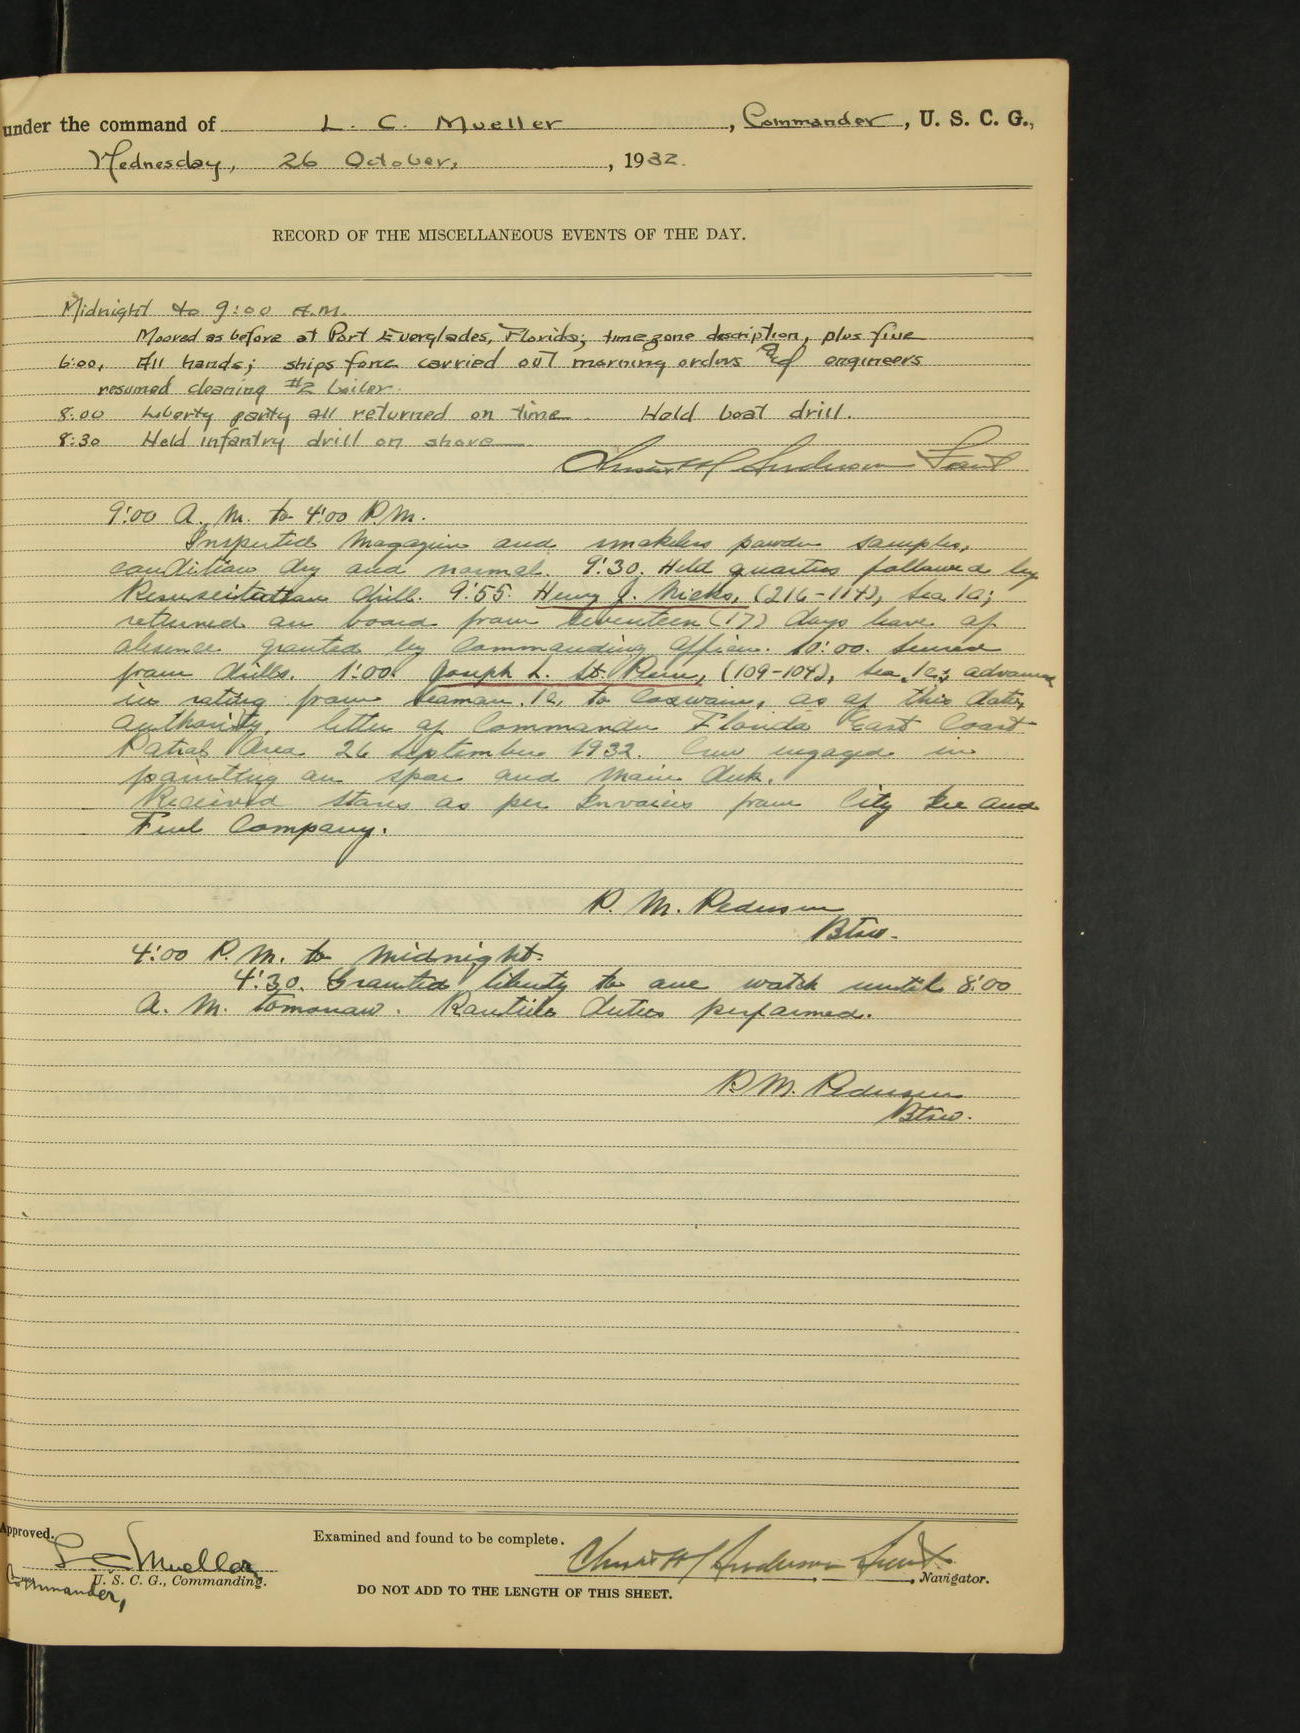 under the command of L. C. Mueller, Commander, U. S. C. G.,
Wednesday, 26 October, 1932.
RECORD OF THE MISCELLANEOUS EVENTS OF THE DAY.
Midnight to 9:00 A.M.
Moored as before at Port Everglades, Florida; time zone description, plus five
6:00, All hands; ships force carried out morning orders and engineers
resumed cleaning #2 boiler.
8:00 Liberty party all returned on time Held boat drill.
8:30 Held infantry drill on shore
Anderson
9:00 A. M. to 4:00 P.M.
Inspected Magazine and smokeless powder samples,
condition dry and normal. 9:30. Held quarters followed by
Resuscitation drill. 9:55. Henry J. Nicks, (216-114), Sea 1c;
returned on board from seventeen (17) days leave of
absence granted by Commanding Officer. 10:00. Secured
from drills. 1:00. Joseph L. St. Pierre, (109-104), Sea. 1c; advanced
in rating from Seaman. 1c, to Coxswain, as of this date,
authority, letter of Commander Florida East Coast
Patrol Area 26 September 1932. Crew engaged in
painting on spar and main deck.
Received stores as per Invoices from City Ice and
Fuel Company.
P. M. Pedersen
Btsw.
4:00 P.M. to midnight.
4:30. Granted liberty to one watch until 8:00
A. M. tomorrow. Routine duties performed.
P. M. Pedersen
Btsw.
Approved.
L C Mueller
Commander, U. S. C. G., Commanding.
Examined and found to be complete.
Anderson
, Navigator.
DO NOT ADD TO THE LENGTH OF THIS SHEET.